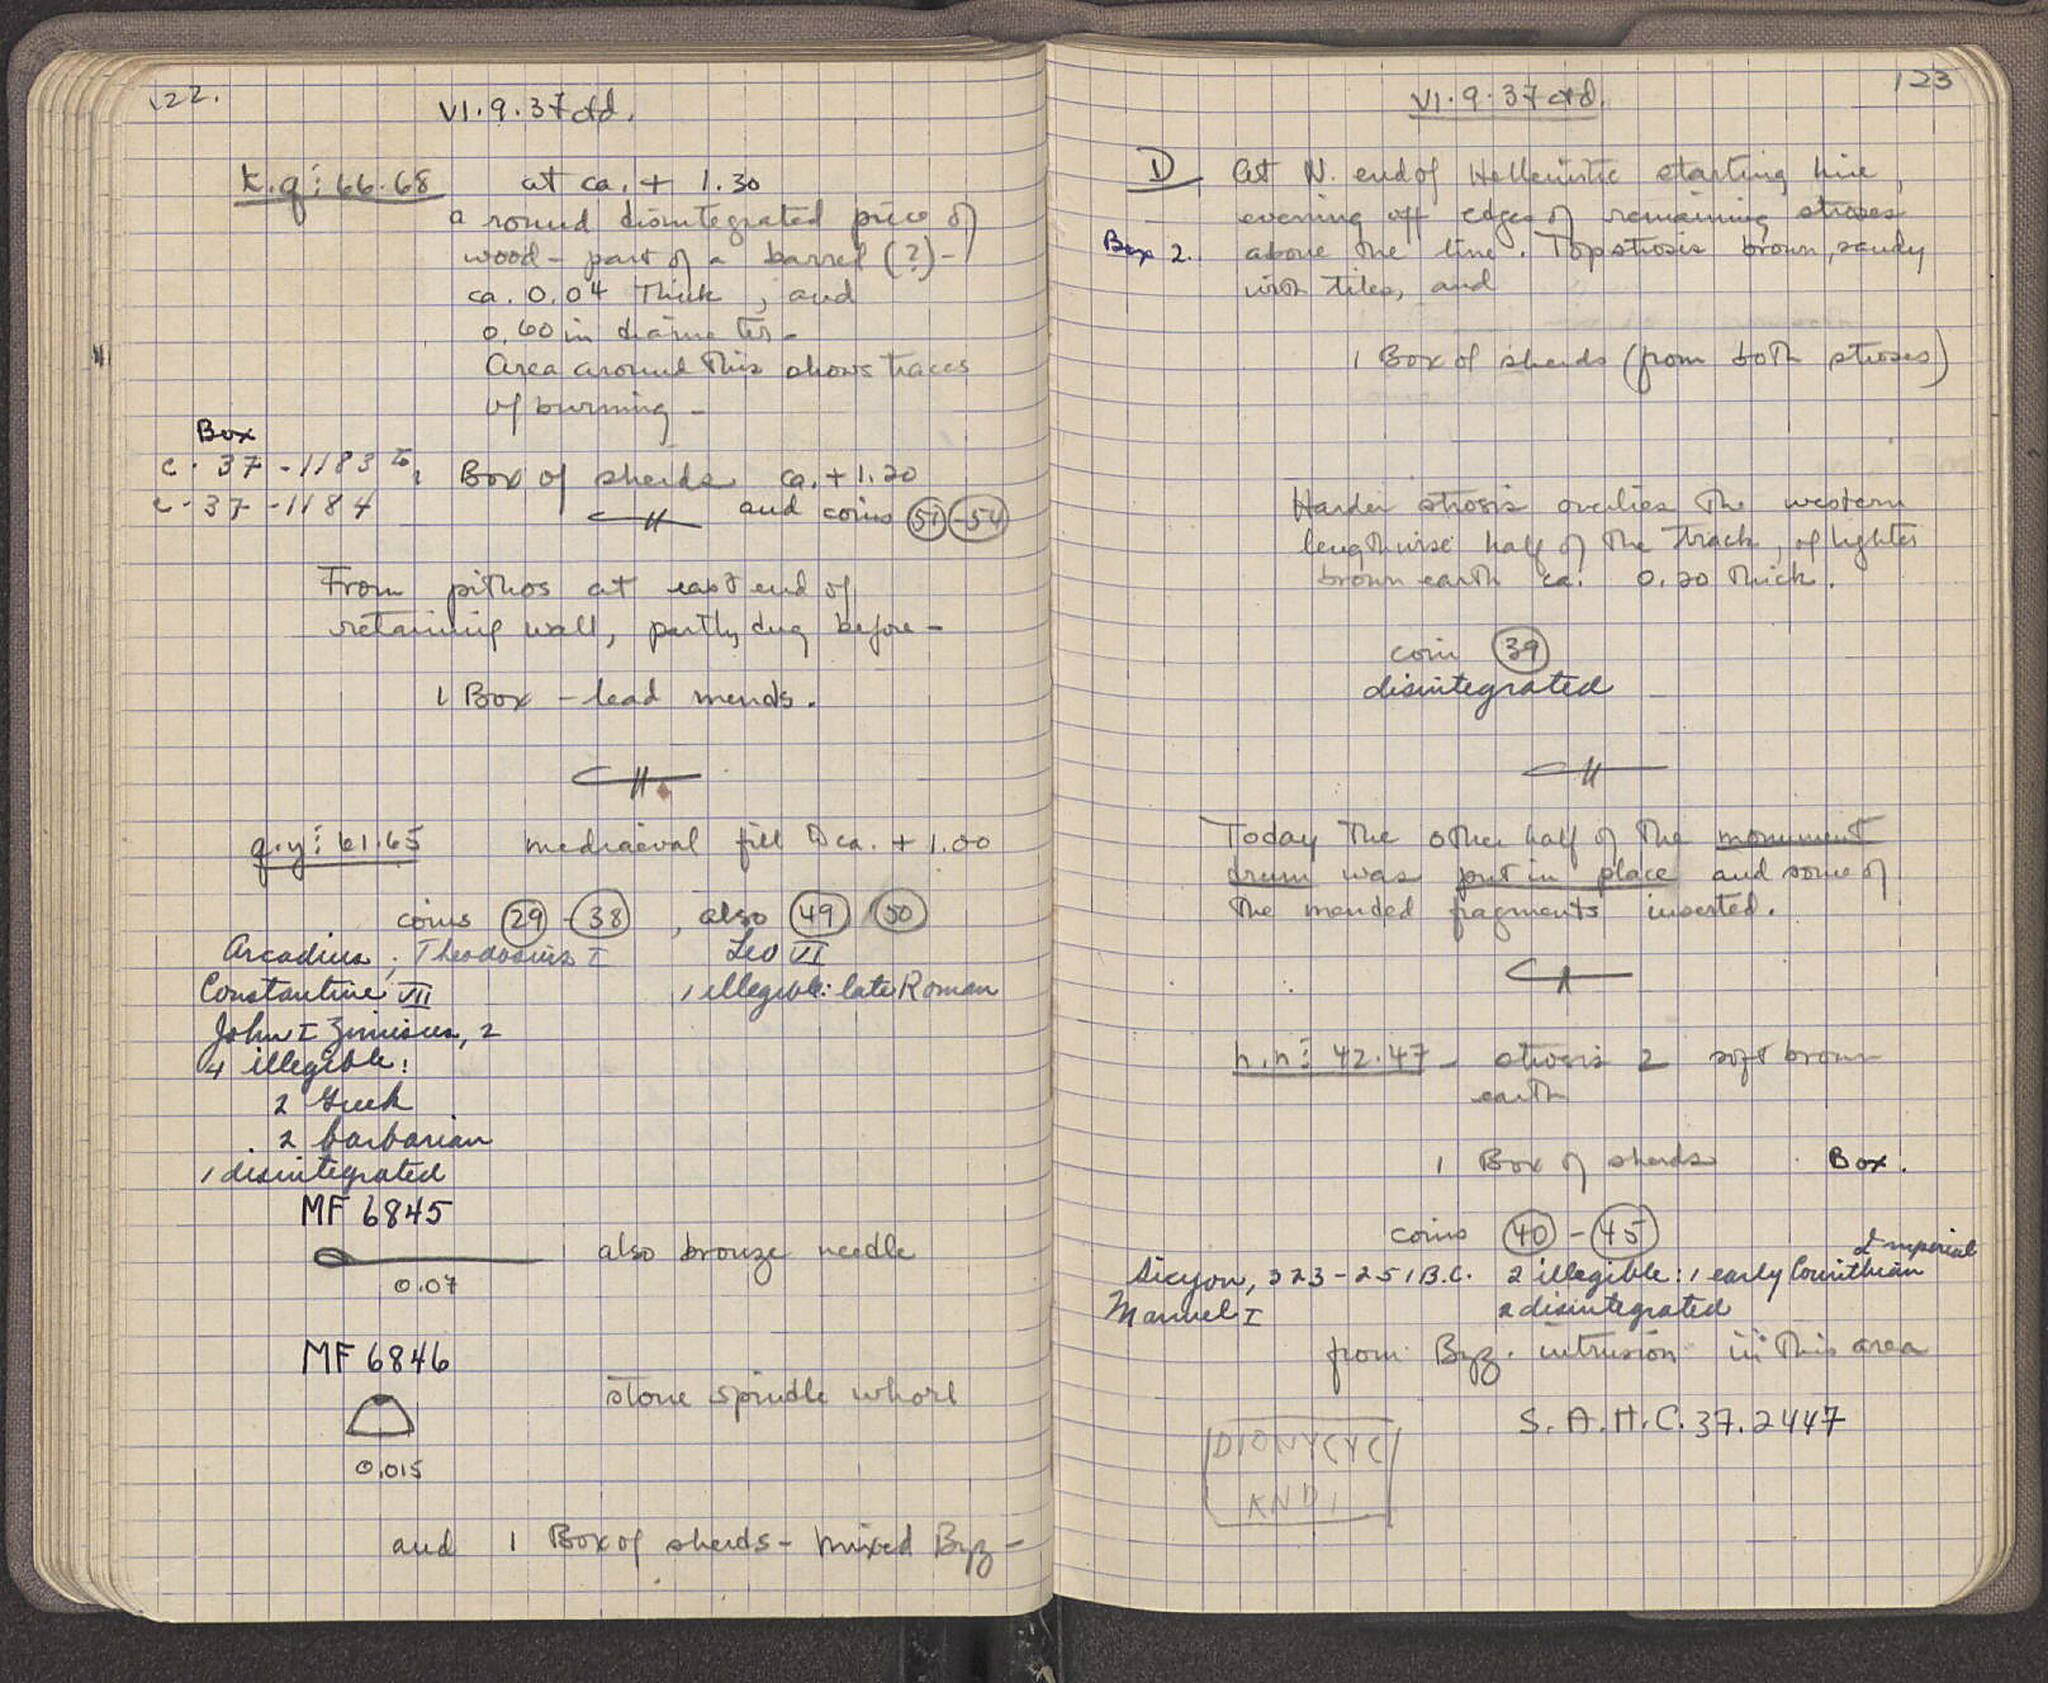 122.
VI.9.37 ctd.
k.q: 66.68 at ca. + 1.30
a round disintegrated piece of
wood - part of a barrel (?) -
ca. 0.04 thick, and
0.60 in diameter -
Area around this shows traces
of burning -
Box
C-37-1183 to
C-37-1184
1 Box of sherds ca. + 1.20
and coins 51-54
From pithos at east end of
retaining wall, partly dug before -
1 Box - lead mends.
q.y: 61.65 mediaeval fill to ca. + 1.00
coins 29-38, also 49, 50
Arcadius; Theodosius I
Leo VI
Constantine VII
1 illegible: late Roman
John I Zimisces, 2
4 illegible:
2 Greek
2 barbarian
1 disintegrated
MF 6845
also bronze needle
0.07
MF 6846
stone spindle whorl
0.015
and 1 Box of sherds - mixed Byz -
123
VI.9.37 ctd.
D At N. end of Hellenistic starting line,
evening off edges of remaining stroses
Box 2. above the line. Top strosis brown, sandy
with tiles, and
1 Box of sherds (from both stroses)
Harder strosis overlies the western
lengthwise half of the track, of lighter
brown earth ca. 0.20 thick.
coin 39
disintegrated
Today the other half of the monument
drum was put in place and some of
the mended fragments inserted.
h.n: 42.47 - strosis 2 soft brown
earth
1 Box of sherds Box.
coins 40-45
Sicyon, 323-251 B.C. 2 illegible: 1 early Corinthian
Imperial
Manuel I 2 disintegrated
from Byz. intrusion in this area
S.A.H.C. 37.2447
DIONYCYC
ANDI